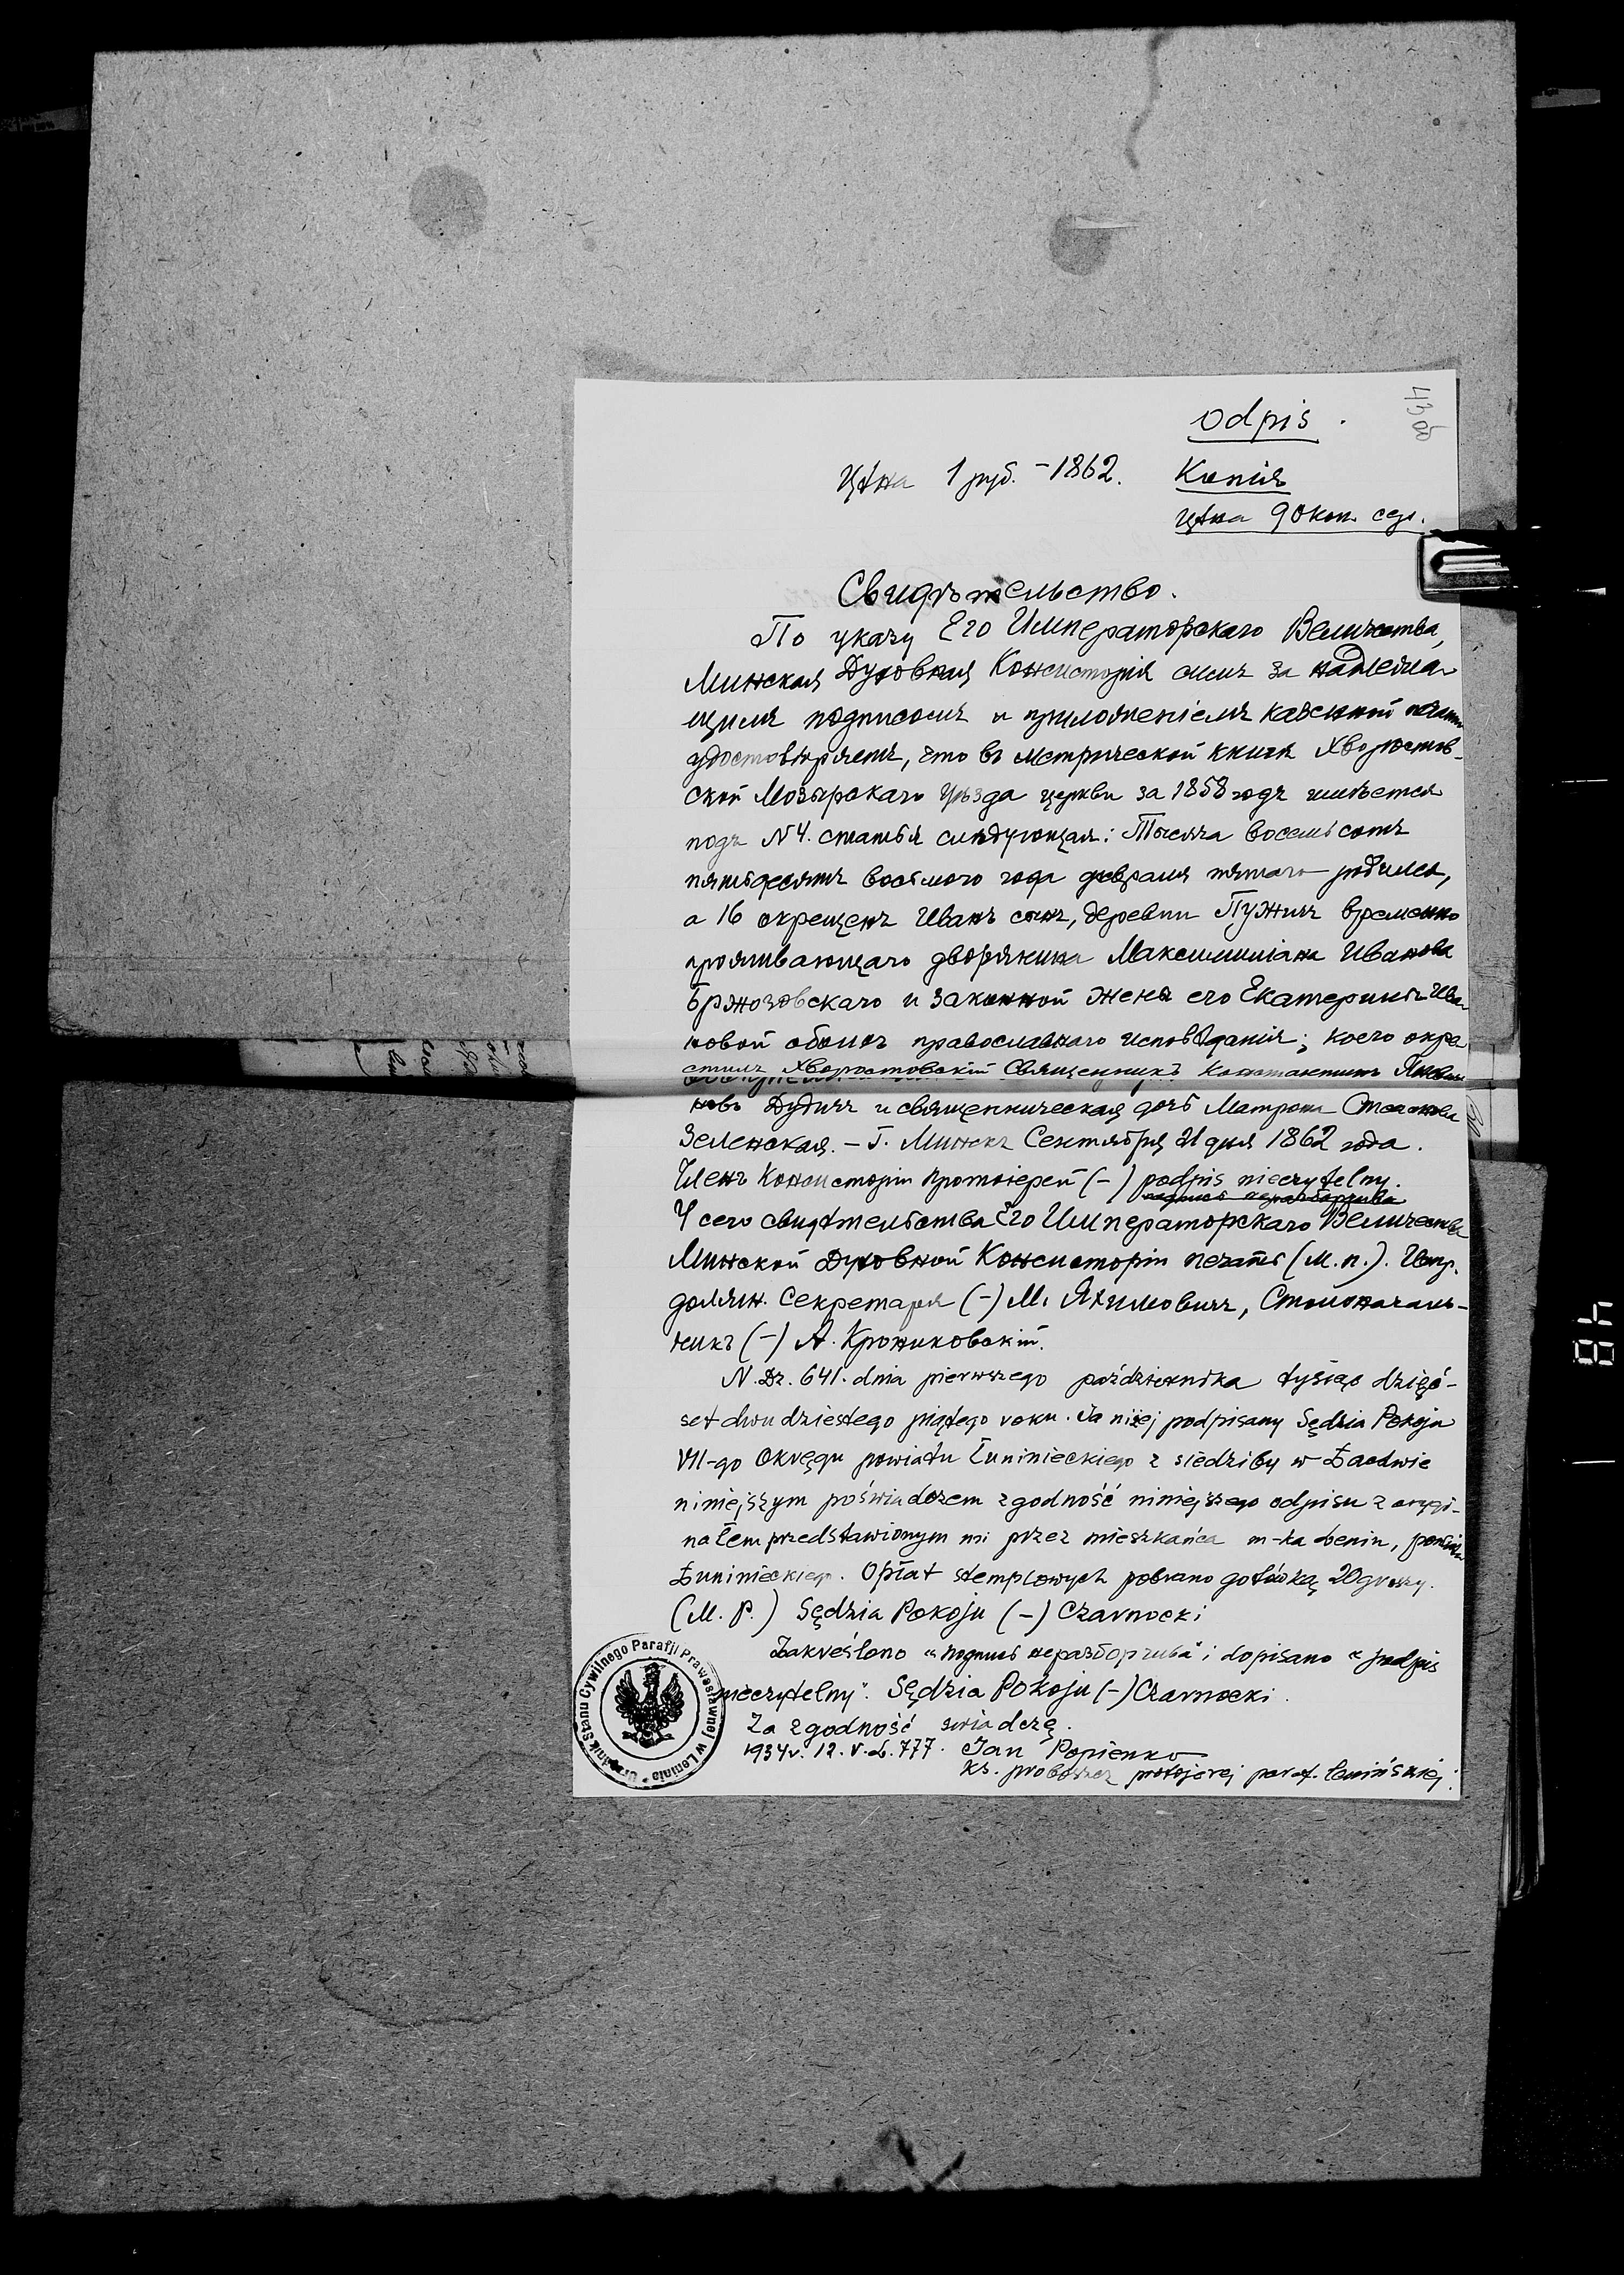 43 об
odpis.
Цѣна 1 руб. - 1862. Копія
цѣна 90 коп. сер.
Свидѣтельство.
По указу Его Императорскаго Величества,
Минская Духовная Консисторія симъ за надлежа-
щимъ подписомъ и приложеніемъ казенной печати
удостовѣряетъ, что въ метрической книгѣ Хворостов-
ской Мозырскаго уѣзда церкви за 1858 годъ имѣется
подъ N 4. статья слѣдующая: Тысяча восемьсотъ
пятьдесятъ восьмого года февраля пятаго родился,
а 16 окрещенъ Иванъ сынъ, деревни Пужичъ временно
проживающаго дворянина Максимиліана Иванова
Бржозовскаго и законной жены его Екатерины Ива-
новой обоихъ православнаго исповѣданія; коего окре-
стилъ Хворостовскій Священникъ Константинъ
новъ Дудичъ и священническая дочь Матрона Степанова
Зеленская. - Г. Минскъ Сентября 21 дня 1862 года.
Членъ Консисторіи Протоіерей (-) podpis nieczytelny.
подпись неразборчива
У сего свидѣтельства Его Императорскаго Величества
Минской Духовной Консисторіи печать (М. п.). Испр.
должн. Секретаря (-) М. Якимовичъ, Столоначаль-
никъ (-) А. Крониковскій.
N. Dz. 641. dnia pierwszego października tysiąc dzięć-
set dwudziestego piątego roku. Ja niżej podpisany Sędzia Pokoju
VII-go Okręgu powiatu Łuninieckiego z siedziby w
niniejszym poświadczem zgodność niniejszego odpisu z orygi-
nałem przedstawionym mi przez mieszkańca m-ka Lenin, powiatu
Łuninieckiego. Opłat stemplowych pobrano gotówką 20 groszy.
(M. P.) Sędzia Pokoju (-) Czarnocki
Zakreślono "подпись неразборчива" i dopisano "podpis
nieczytelny". Sędzia Pokoju (-) Czarnocki.
Za zgodność świadczę.
1934 r. 12. V. L. 777. Jan Popienko
ks. proboszcz protojerej paraf. Lenińskiej.
Urzędnik Stanu Cywilnego Parafji Prawosławnej w Leninie
48